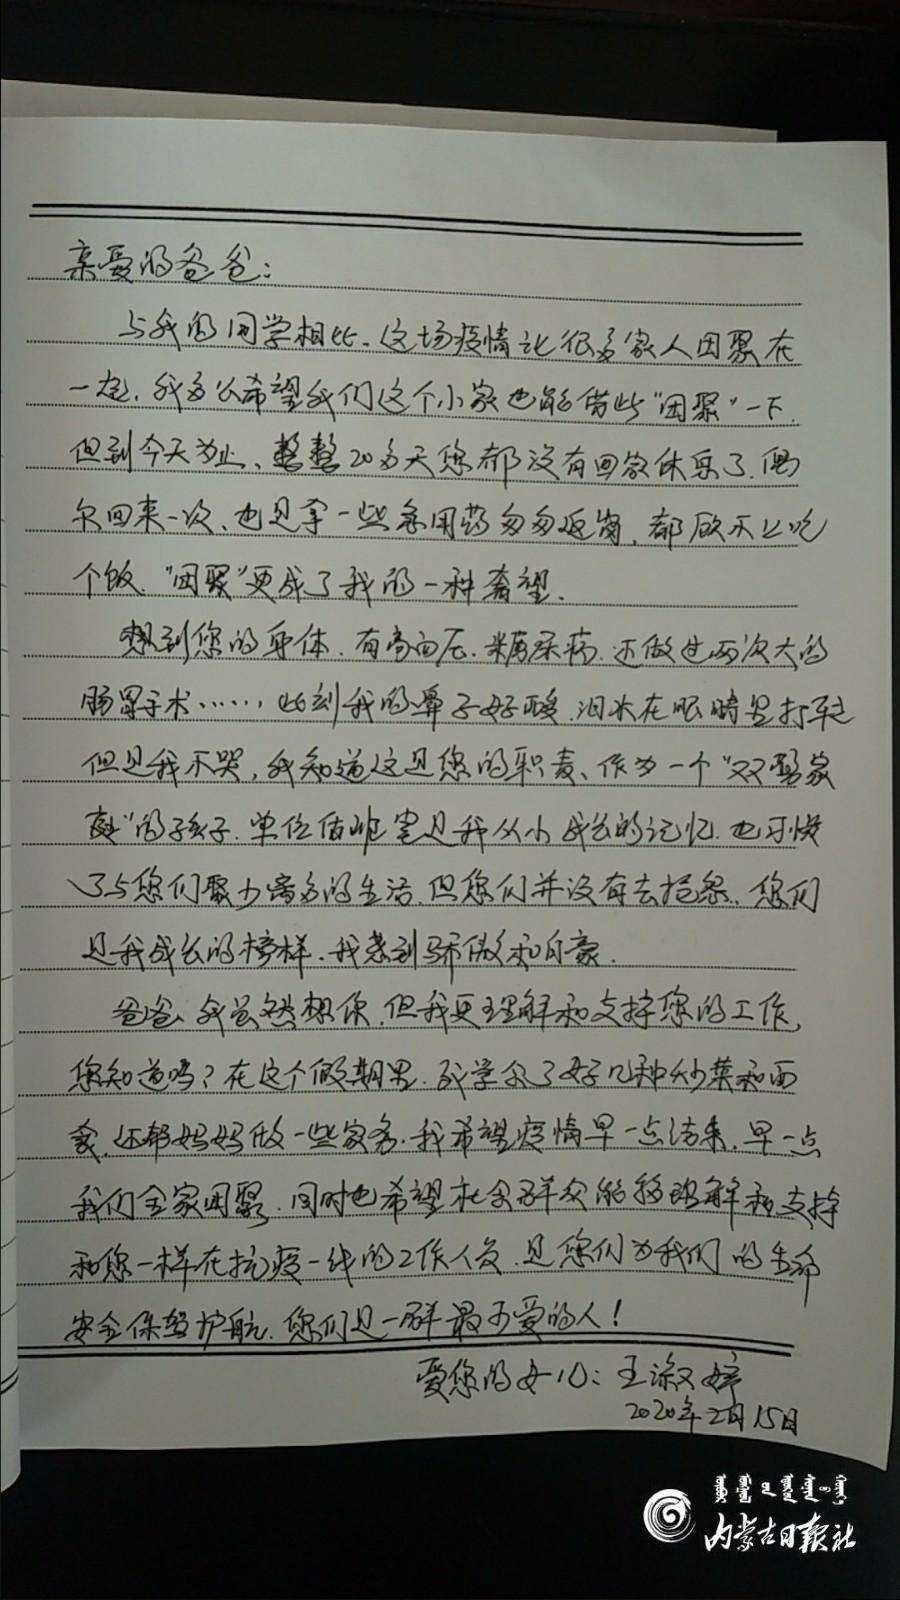 亲爱的爸爸：
与我的同学相比，这场疫情让很多家人团聚在
一起，我多么希望我们这个小家也能借此“团聚”一下，
但到今天为止、整整20多天您都没有回家休息了，偶
尔回来一次、也是拿一些常用药匆匆返岗，都顾不上吃
个饭，“团聚”更成了我的一种奢望。
想到您的身体，有高血压、糖尿病，还做过两次大的
肠胃手术……此刻我的鼻子好酸，泪水在眼睛里打转
但是我不哭，我知道这是您的职责、作为一个“双警家
庭”的孩子，单位值班室是我从小成长的记忆，也习惯
了与您们聚少离多的生活，但您们并没有去抱怨，您们
是我成长的榜样，我感到骄傲和自豪。
爸爸，我虽然想你，但我更理解和支持您的工作，
您知道吗？在这个假期里，我学会了好几种炒菜和面
食，还帮妈妈做一些家务，我希望疫情早一点结束，早一点
我们全家团聚，同时也希望社会群众能够理解和支持
和您一样在抗疫一线的工作人员，是您们为我们的生命
安全保驾护航，您们是一群最可爱的人！
爱您的女儿：王淑婷
2020年2月15日
内蒙古日报社